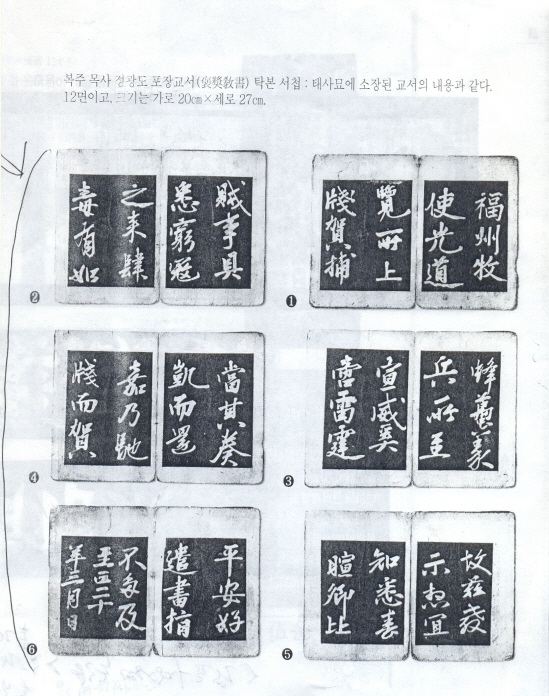 복주 목사 정광도 포장교서(褒奬敎書) 탁본 서첩 : 태사묘에 소장된 교서의 내용과 같다.
12면이고, 크기는 가로 20㎝×세로 27㎝.
❶
福州牧
使光道
覽所上
牋賀捕
❷
賊事具
悉窮寇
之來肆
毒有如
❸
蜂蠆義
兵所至
宣威奚
啻雷霆
❹
當其奏
凱而還
嘉乃馳
牋而賀
❺
故玆敎
示想宜
知悉春
暄卿比
❻
平安好
遣書指
不多及
至正二十
年三月日